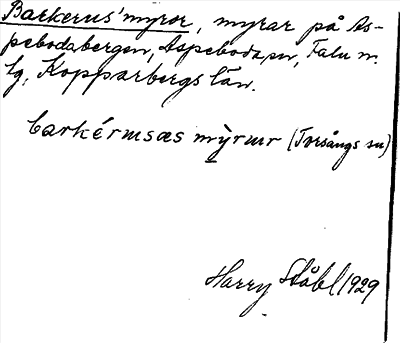 Barkerus'myror, myrar på As-
pebodabergen, Aspeboda sn, Falu n.
tg, Kopparbergs län.
barkérusæs mỳrur (Torsångs sn)
Harry Ståhl 1929